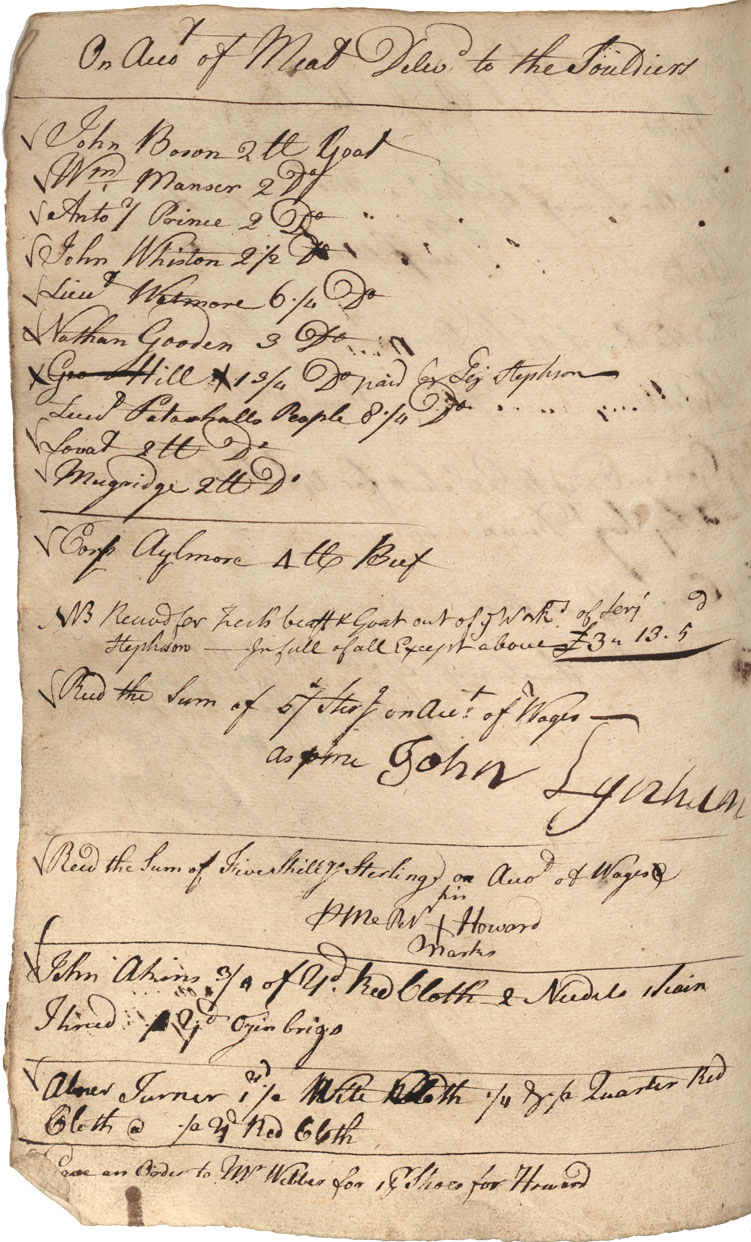 On Acot of Meat Delivd to the Souldiers
John Boson 2 tt Goat
Wm Manser 2 Do
Antoy Prince 2 Do
John Whiston 2 1/2 Do
Lieut Wetmore 6 1/4 Do
Nathan Gooden 3 Do
Geo Hill 1 3/4 Do paid by Serj Stephson
Lieut Peter halls People 8 1/4 Do
Lovat 2 tt Do
Mugridge 2 tt Do
Corp Aylmore 4 tt Beef
NB Recivd for fresh beaff & Goat out of ye Work of Serj
Stephson — In full of all Except above £3 " 13 . 5 d
Recd the Sum of Sterg on Acct of Wages
as pr me John Lynham
Recd the Sum of Five Shillgs Sterling on Acod of Wages
his
P Me + Howard
Marks
John Akins 3/4 of Yd Red Cloth 2 Needels 1 skain
Thread Yd Ozinbrigs
Abner Turner 1 1/2 yd Wite Cloth 1/4 & 1/2 Quarter Red
Cloth @ 1/2 Yd Red Cloth
Gave an Order to Mr Willis for 1 pr Shoes for Howard